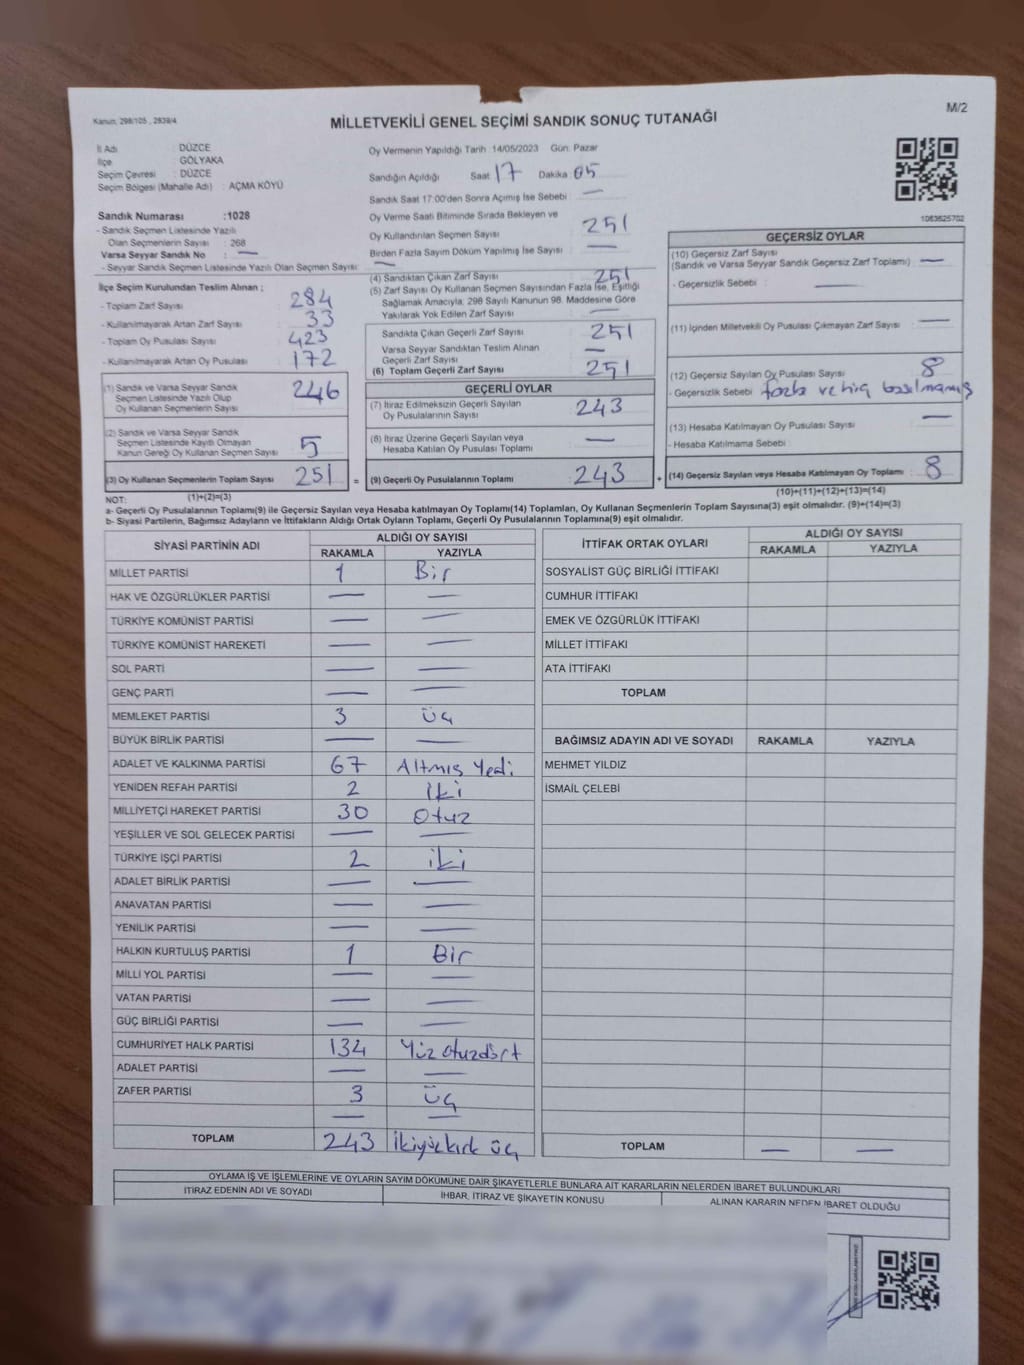 Kanun, 298/105 , 2839/4
M/2
MİLLETVEKİLİ GENEL SEÇİMİ SANDIK SONUÇ TUTANAĞI
İl Adı : DÜZCE
İlçe : GÖLYAKA
Seçim Çevresi : DÜZCE
Seçim Bölgesi (Mahalle Adı) : AÇMA KÖYÜ
Sandık Numarası :1028
- Sandık Seçmen Listesinde Yazılı
Olan Seçmenlerin Sayısı : 268
Varsa Seyyar Sandık No : —
- Seyyar Sandık Seçmen Listesinde Yazılı Olan Seçmen Sayısı : —
Oy Vermenin Yapıldığı Tarih :14/05/2023 Gün: Pazar
Sandığın Açıldığı Saat : 17 Dakika : 05
Sandık Saat 17:00'den Sonra Açımış İse Sebebi : —
Oy Verme Saati Bitiminde Sırada Bekleyen ve
Oy Kullandırılan Seçmen Sayısı : 251
Birden Fazla Sayım Döküm Yapılmış İse Sayısı : —
1083625702
İlçe Seçim Kurulundan Teslim Alınan ;
- Toplam Zarf Sayısı : 284
- Kullanılmayarak Artan Zarf Sayısı : 33
- Toplam Oy Pusulası Sayısı : 423
- Kullanılmayarak Artan Oy Pusulası : 172
(1) Sandık ve Varsa Seyyar Sandık
Seçmen Listesinde Yazılı Olup
Oy Kullanan Seçmenlerin Sayısı : 246
(2) Sandık ve Varsa Seyyar Sandık
Seçmen Listesinde Kayıtlı Olmayan
Kanun Gereği Oy Kullanan Seçmen Sayısı : 5
(3) Oy Kullanan Seçmenlerin Toplam Sayısı : 251 =
(1)+(2)=(3)
(4) Sandıktan Çıkan Zarf Sayısı : 251
(5) Zarf Sayısı Oy Kullanan Seçmen Sayısından Fazla İse, Eşitliği
Sağlamak Amacıyla; 298 Sayılı Kanunun 98. Maddesine Göre
Yakılarak Yok Edilen Zarf Sayısı : —
Sandıkta Çıkan Geçerli Zarf Sayısı : 251
Varsa Seyyar Sandıktan Teslim Alınan
Geçerli Zarf Sayısı : —
(6) Toplam Geçerli Zarf Sayısı : 251
GEÇERLİ OYLAR
(7) İtiraz Edilmeksizin Geçerli Sayılan
Oy Pusulalarının Sayısı : 243
(8) İtiraz Üzerine Geçerli Sayılan veya
Hesaba Katılan Oy Pusulası Toplamı : —
(9) Geçerli Oy Pusulalarının Toplamı : 243 +
GEÇERSİZ OYLAR
(10) Geçersiz Zarf Sayısı
(Sandık ve Varsa Seyyar Sandık Geçersiz Zarf Toplamı) : —
- Geçersizlik Sebebi : —
(11) İçinden Milletvekili Oy Pusulası Çıkmayan Zarf Sayısı : —
(12) Geçersiz Sayılan Oy Pusulası Sayısı : 8
- Geçersizlik Sebebi : fazla ve hiç basılmamış
(13) Hesaba Katılmayan Oy Pusulası Sayısı : —
- Hesaba Katılmama Sebebi :
(14) Geçersiz Sayılan veya Hesaba Katılmayan Oy Toplamı : 8
(10)+(11)+(12)+(13)=(14)
NOT:
a- Geçerli Oy Pusulalarının Toplamı(9) ile Geçersiz Sayılan veya Hesaba Katılmayan Oy Toplamı(14) Toplamları, Oy Kullanan Seçmenlerin Toplam Sayısına(3) eşit olmalıdır. (9)+(14)=(3)
b- Siyasi Partilerin, Bağımsız Adayların ve İttifakların Aldığı Ortak Oyların Toplamı, Geçerli Oy Pusulalarının Toplamına(9) eşit olmalıdır.
SİYASİ PARTİNİN ADI ALDIĞI OY SAYISI
RAKAMLA YAZIYLA
MİLLET PARTİSİ 1 Bir
HAK VE ÖZGÜRLÜKLER PARTİSİ — —
TÜRKİYE KOMÜNİST PARTİSİ — —
TÜRKİYE KOMÜNİST HAREKETİ — —
SOL PARTİ — —
GENÇ PARTİ — —
MEMLEKET PARTİSİ 3 üç
BÜYÜK BİRLİK PARTİSİ — —
ADALET VE KALKINMA PARTİSİ 67 Altmış Yedi
YENİDEN REFAH PARTİSİ 2 iki
MİLLİYETÇİ HAREKET PARTİSİ 30 Otuz
YEŞİLLER VE SOL GELECEK PARTİSİ — —
TÜRKİYE İŞÇİ PARTİSİ 2 iki
ADALET BİRLİK PARTİSİ — —
ANAVATAN PARTİSİ — —
YENİLİK PARTİSİ — —
HALKIN KURTULUŞ PARTİSİ 1 Bir
MİLLİ YOL PARTİSİ — —
VATAN PARTİSİ — —
GÜÇ BİRLİĞİ PARTİSİ — —
CUMHURİYET HALK PARTİSİ 134 Yüz otuzdört
ADALET PARTİSİ — —
ZAFER PARTİSİ 3 üç
— —
TOPLAM 243 ikiyüzkırk üç
İTTİFAK ORTAK OYLARI ALDIĞI OY SAYISI
RAKAMLA YAZIYLA
SOSYALİST GÜÇ BİRLİĞİ İTTİFAKI
CUMHUR İTTİFAKI
EMEK VE ÖZGÜRLÜK İTTİFAKI
MİLLET İTTİFAKI
ATA İTTİFAKI
TOPLAM
BAĞIMSIZ ADAYIN ADI VE SOYADI RAKAMLA YAZIYLA
MEHMET YILDIZ
İSMAİL ÇELEBİ
TOPLAM — —
OYLAMA İŞ VE İŞLEMLERİNE VE OYLARIN SAYIM DÖKÜMÜNE DAİR ŞİKAYETLERLE BUNLARA AİT KARARLARIN NELERDEN İBARET BULUNDUKLARI
İTİRAZ EDENİN ADI VE SOYADI İHBAR, İTİRAZ VE ŞİKAYETİN KONUSU ALINAN KARARIN NEDEN İBARET OLDUĞU